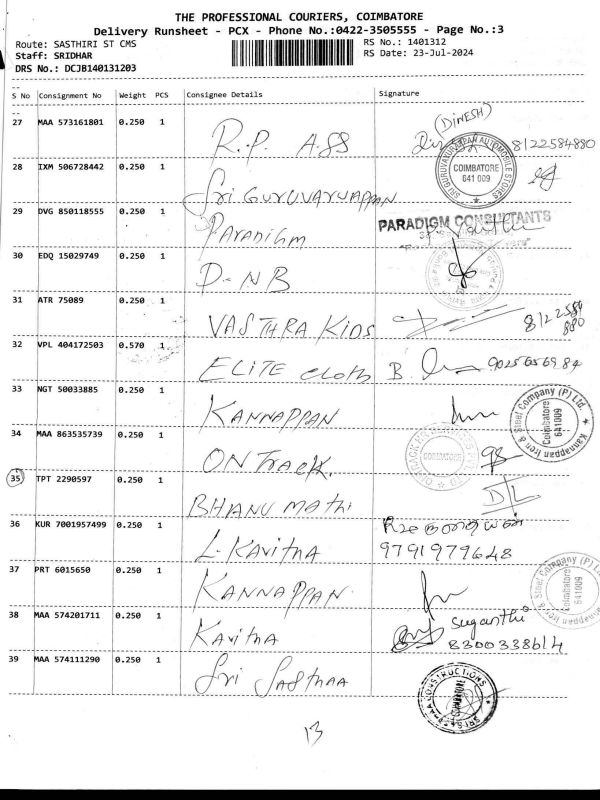 THE PROFESSIONAL COURIERS, COIMBATORE
Delivery Runsheet - PCX - Phone No.:0422-3505555 - Page No.:3
Route: SASTHIRI ST CMS
RS No.: 1401312
Staff: SRIDHAR
RS Date: 23-Jul-2024
DRS No.: DCJB140131203
S No Consignment No Weight PCS Consignee Details Signature
(DINESH)
27 MAA 573161801 0.250 1 R.P. ASS 8122584880
SRI GURUVAYURAPPAN AUTOMOBILE STORES
COIMBATORE
641 009
28 IXM 506728442 0.250 1 Sri GURUVAYUAPPAN
29 DVG 850118555 0.250 1 Paradigm
PARADIGM CONSULTANTS
30 EDQ 15029749 0.250 1 D-NB
31 ATR 75089 0.250 1 VASTHRA KIDS 8122584
880
32 VPL 404172503 0.570 1 ELITE cloth B. 9025656984
33 NGT 50033885 0.250 1 KANNAPPAN
Kannappan Iron & Steel Company (P) Ltd.
Coimbatore
641009
34 MAA 863535739 0.250 1 ON Track
COIMBATORE
35 TPT 2290597 0.250 1 BHANU mathi DL
36 KUR 7001957499 0.250 1 L. KAVITHA
9791979648
37 PRT 6015650 0.250 1 KANNAPPAN
& Steel Company (P)
Coimbatore
641009
38 MAA 574201711 0.250 1 Kavitha suganthi
8300338614
39 MAA 574111290 0.250 1 Sri SASTHAA
CONSTRUCTIONS
13